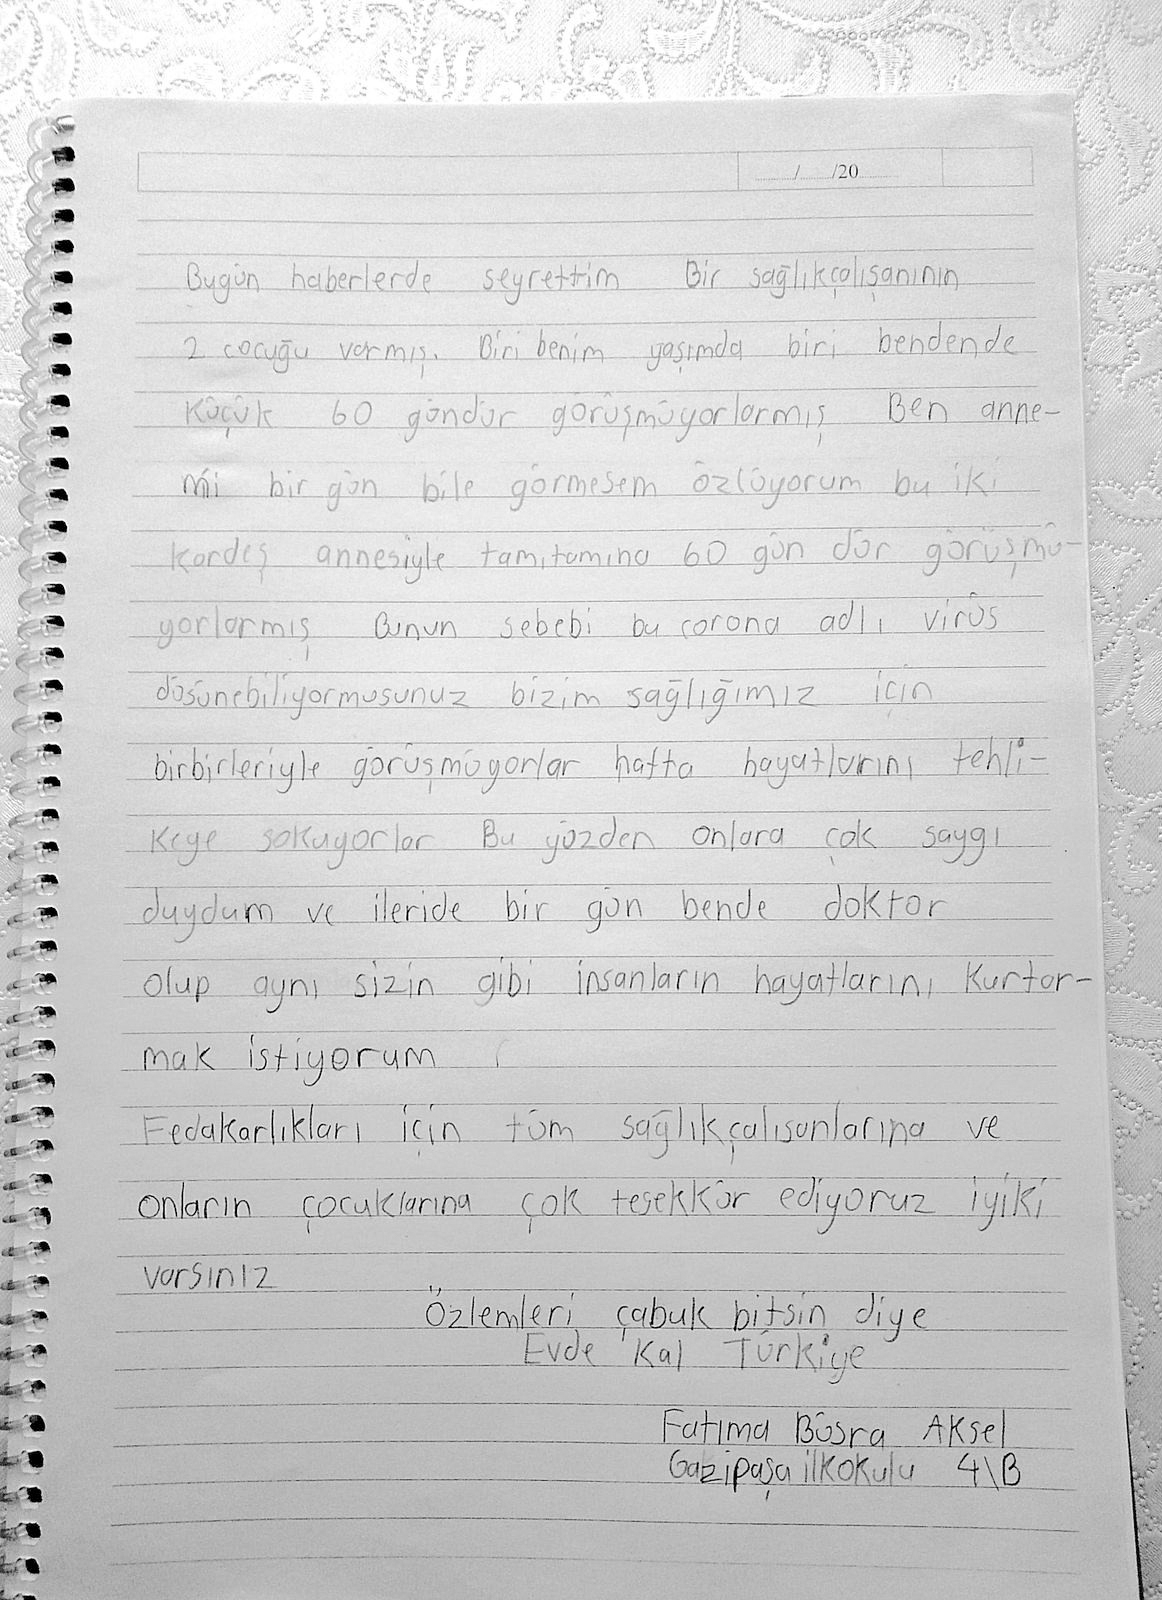 / /20
Bugün haberlerde seyrettim Bir sağlıkçalışanının
2 cocuğu varmış. Biri benim yaşımda biri bendende
Küçük 60 gündür görüşmüyorlarmış Ben anne-
mi bir gün bile görmesem özlüyorum bu iki
Kardeş annesiyle tamıtamına 60 gün dür görüşmü-
yorlarmış Bunun sebebi bu corona adlı virüs
düsünebiliyormusunuz bizim sağlığımız için
birbirleriyle görüşmüyorlar hatta hayatlarını tehli-
Keye sokuyorlar Bu yüzden onlara çok saygı
duydum ve ileride bir gün bende doktor
olup aynı sizin gibi insanların hayatlarını Kurtar-
mak istiyorum
Fedakarlıkları için tüm sağlıkçalısanlarına ve
onların çocuklarına çok teşekkür ediyoruz iyiki
varsınız
Özlemleri çabuk bitsin diye
Evde Kal Türkiye
Fatıma Büsra Aksel
Gazipaşa ilkokulu 4\B